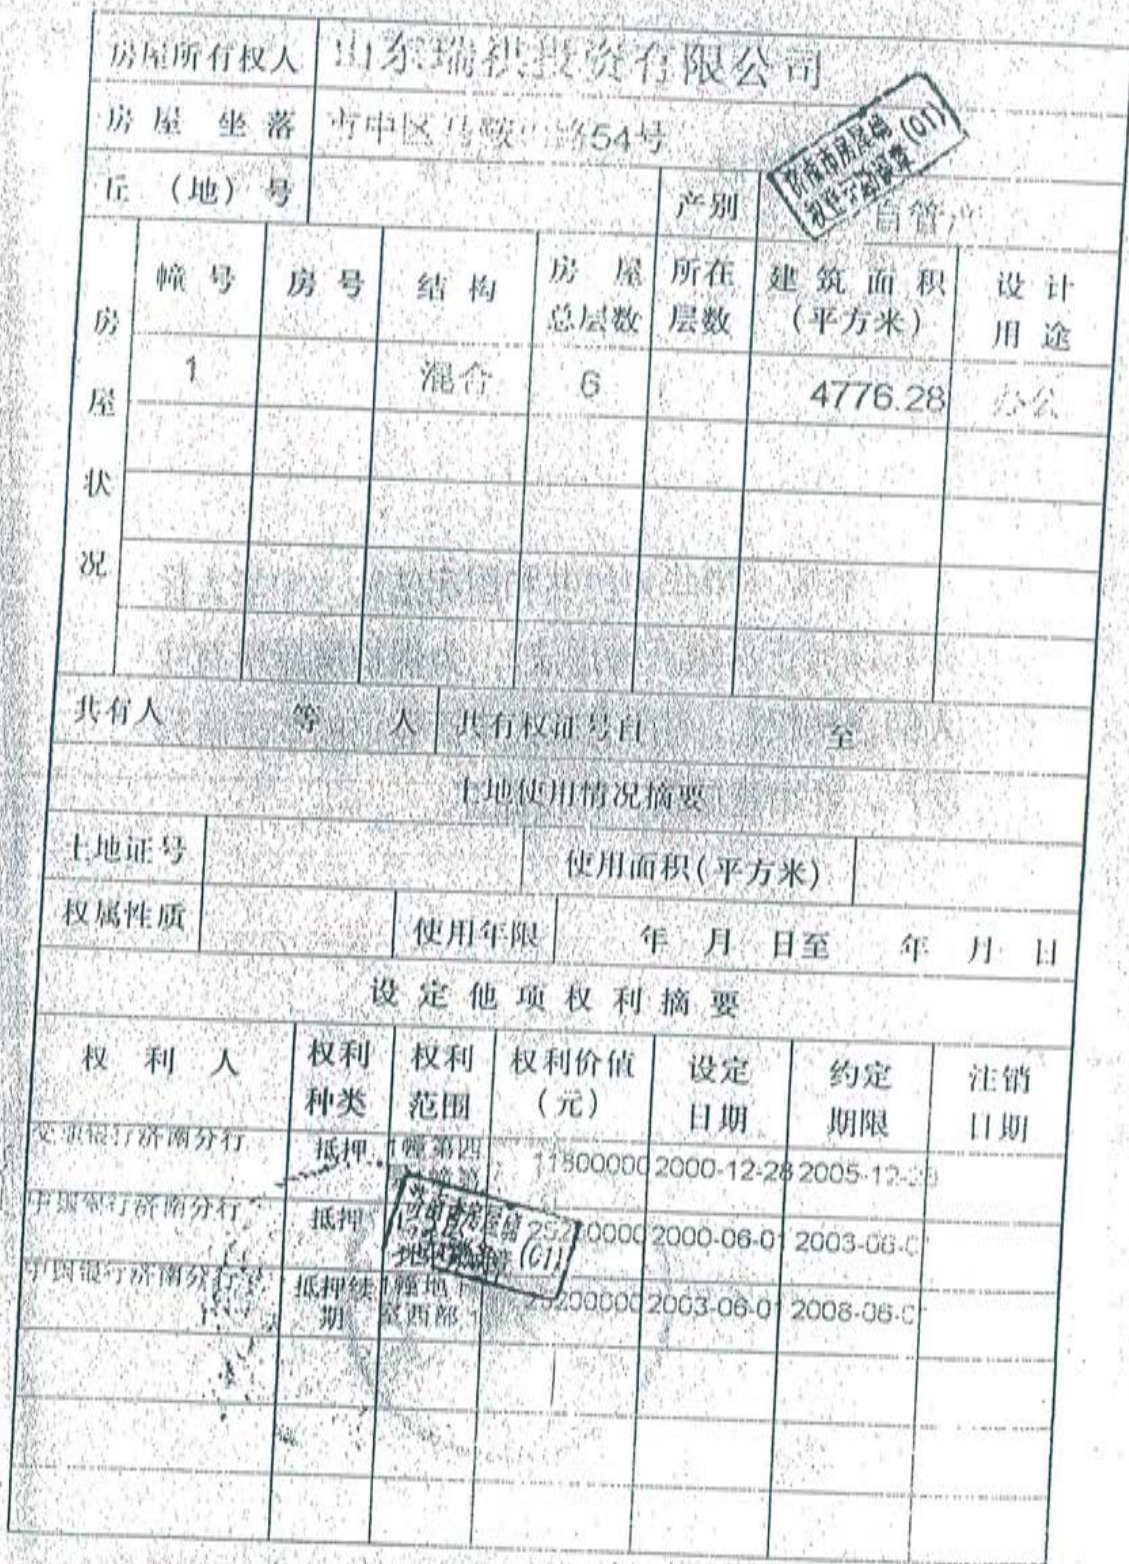 房屋所有权人 山东瑞祺投资有限公司
房屋 坐落 市中区马鞍山路54号
丘 (地) 号 产别 自管产
房屋状况
幢号 房号 结构 房屋总层数 所在层数 建筑面积(平方米) 设计用途
1 混合 6 4776.28 办公
共有人 等 人 共有权证号自 至
土地使用情况摘要
土地证号 使用面积(平方米)
权属性质 使用年限 年 月 日至 年 月 日
设定他项权利摘要
权利人 权利种类 权利范围 权利价值(元) 设定日期 约定期限 注销日期
银行济南分行 抵押 幢第四 11800000 2000-12-28 2005-12-28
银行济南分行 抵押 0000 2000-06-01 2003-06-0
中国银行济南分行 抵押续期 幢地 室西部 25200000 2003-06-01 2008-06-0
(01)
(01)